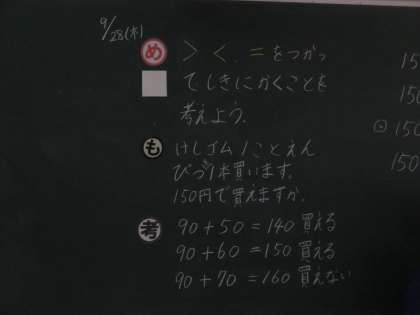 9/28(木)
め > <. =をつかっ
てしきにかくことを
考えよう.
も けしゴム1ことえん
ぴつ1本買います.
150円で買えますか.
考 90+50=140 買える
90+60=150 買える
90+70=160 買えない
150
150
150
150